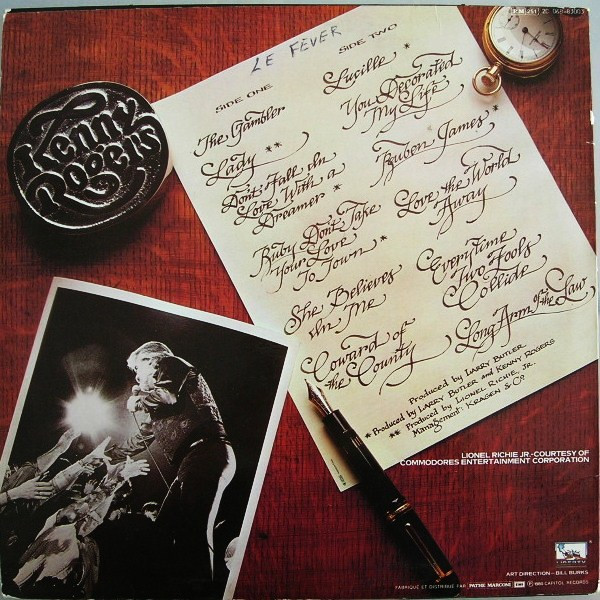 PM 251 2C 068-83003
LE FÈVER
SIDE TWO
SIDE ONE
Kenny
Rogers
The Gambler
Lady **
Don't Fall In
Love With a
Dreamer *
Ruby Don't Take
Your Love
To Town *
She Believes
In Me
Coward of
the County
Lucille *
You Decorated
My Life
Ruben James *
Love the World
Away
Everytime
Two Fools
Collide
Long Arm of the Law
Produced by LARRY BUTLER
* Produced by LARRY BUTLER and KENNY ROGERS
** Produced by LIONEL RICHIE, JR.
Management: KRAGEN & Co
LIONEL RICHIE JR.-COURTESY OF
COMMODORES ENTERTAINMENT CORPORATION
LIBERTY
ART DIRECTION - BILL BURKS
FABRIQUÉ ET DISTRIBUÉ PAR PATHÉ MARCONI EMI ℗ 1980 CAPITOL RECORDS